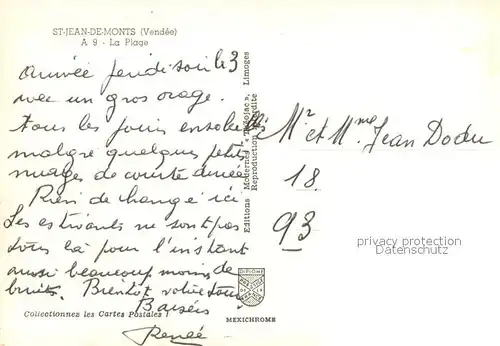 ST-JEAN-DE-MONTS (Vendée)
A 9 - La Plage
arrivée jeudi soir le 3
avec un gros orage.
Tous les jours ensoleillés
malgré quelques petits
nuages de courte durée
Rien de changé ici
Les estivants ne sont pas
tous là pour l'instant
aussi beaucoup moins de
bruits. Bientôt votre tour
Baisers
Renée
Collectionnez les Cartes Postales !
Editions Modernes « », Limoges
Reproduction Interdite
DIPLOME
PRESTIGE
FRANCE
MEXICHROME
Mr et Mme Jean Dodu
18.
93
privacy protection
Datenschutz